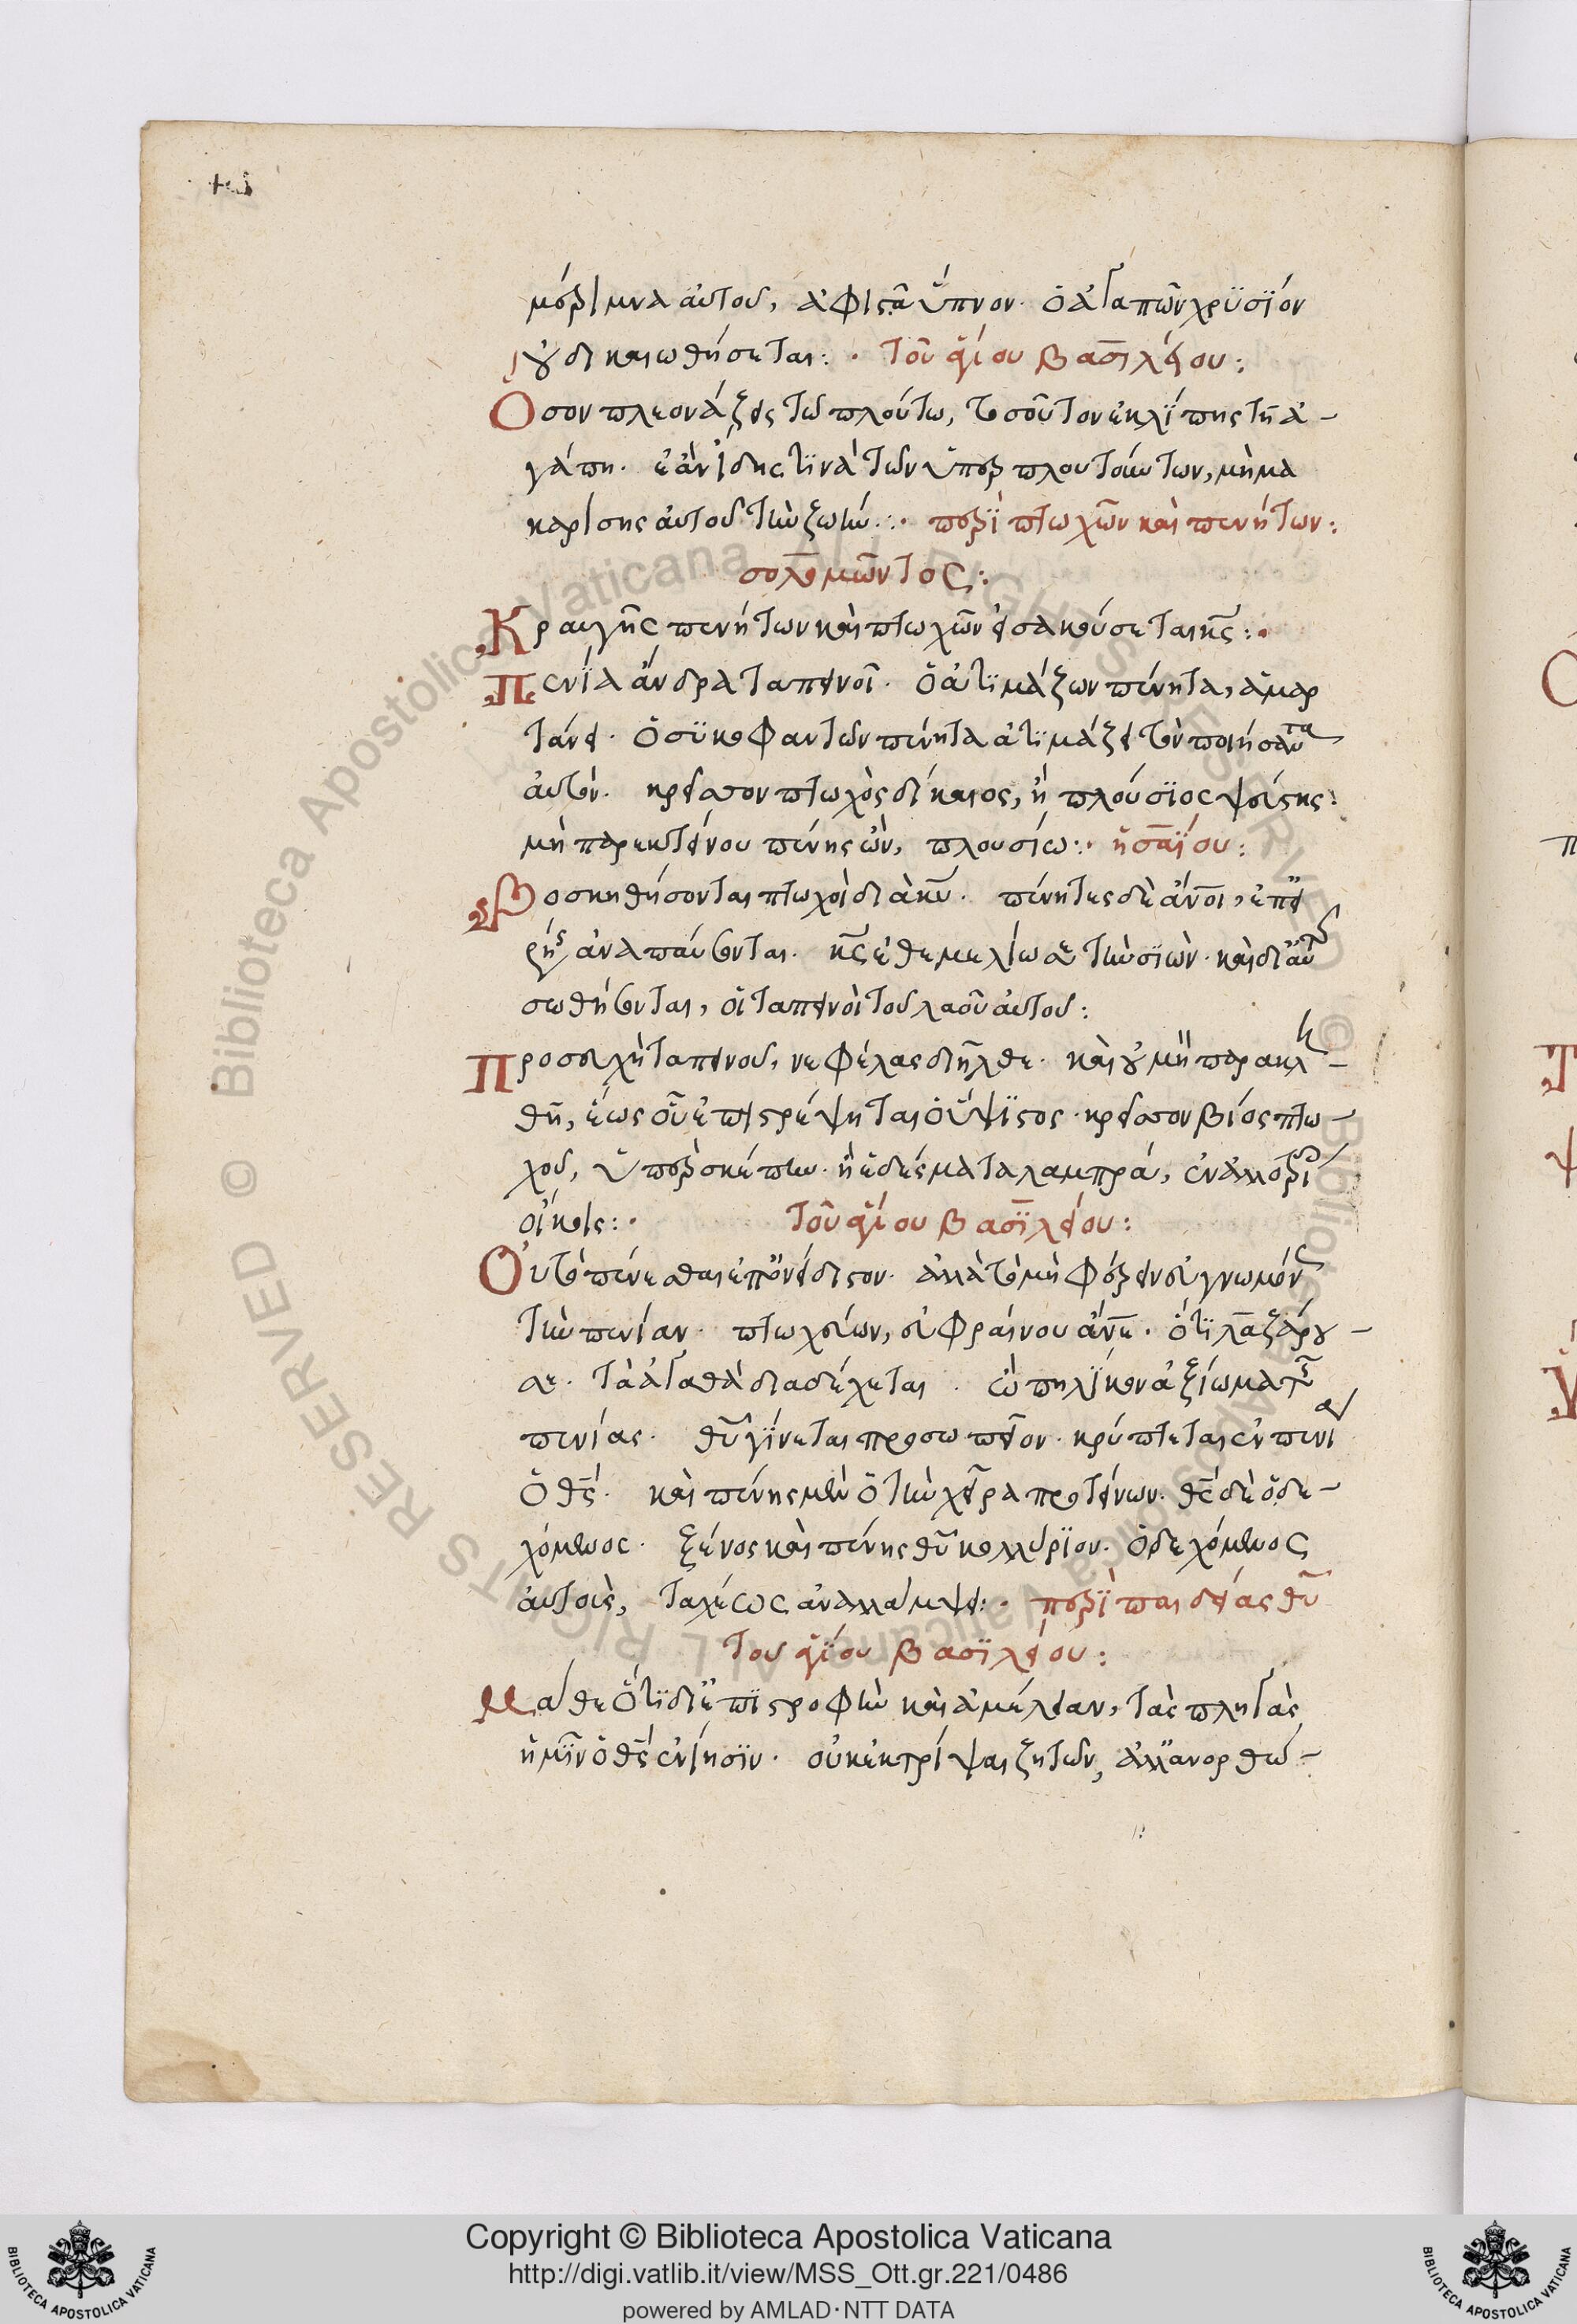 μέριμνα αὐτοῦ, ἀφιστᾶ ὕπνον· ὁ ἀγαπῶν χρϋσΐον
οὐ δικαιωθήσεται:· τοῦ ἁγίου Βασιλείου:
Ὅσον πλεονάζεις τῶ πλούτω, τοσοῦτον ἐκλίπης τῆ ἀ-
γάπη· ἐὰν ἴδης τϊνὰ τῶν ὑπερπλουτούντων, μὴ μα
καρίσης αὐτοῦ τὴν ζωήν:· περὶ πτωχῶν καὶ πενήτων:
σολομῶντος:
Κραυγῆς πενήτων καὶ πτωχῶν εἰσακούσεται κς:·
Πενΐα ἄνδρα ταπεινοῖ· ὁ ἀτϊμάζων πένητα, ἁμαρ
τάνει· ὁ σϋκοφαντῶν πένητα ἀτϊμάζει τὸν ποιήσαντα
αὐτόν· κρεῖσσον πτωχὸς δίκαιος, ἢ πλούσϊος ψεύστης:
μὴ παρεκτείνου πένης ὢν, πλουσίω:· ἠσαΐου:
Βοσκηθήσονται πτωχοὶ διὰ κυ· πένητες δὲ ἄνοι, ἐπ' εἰ
ρήνης ἀναπαύσονται· κς ἐθεμελίωσε τὴν σϊών· καὶ δι' αὐτοῦ
σωθήσονται, οἱ ταπεινοὶ τοῦ λαοῦ αὐτοῦ:
Προσευχὴ ταπεινοῦ, νεφέλας διῆλθε· καὶ οὐ μὴ παρακλη-
θῆ, ἕως οὗ ἐπιστρέψηται ὁ ὕψϊστος· κρεῖσσον βίος πτω-
χοῦ, ὑπὲρ σκέπην· ἢ ἐδέσματα λαμπρὰ, ἐν ἀλλοτρίοις
οἴκοις:· τοῦ ἁγίου Βασϊλείου:
Οὐ τὸ πένεσθαι ἐπονείδιστον· ἀλλὰ τὸ μὴ φέρειν εὐγνωμόνως
τὴν πενίαν· πτωχεύων, εὐφραίνου ἄνε· ὅτϊ λαζάρου
σε· τὰ ἀγαθὰ διαδέχεται· ὢ πηλΐκον ἀξίωμα τῆς
πενίας· θυ γΐνεται προσωπεῖον· κρύπτεται ἐν πενία
ὁ θς· καὶ πένης μὲν ὁ τὴν χεῖρα προτείνων· θς δὲ ὁ δε-
χόμενος· ξένος καὶ πένης θυ κολλύρϊον· ὁ δεχόμενος
αὐτοὺς, ταχέως ἀναλλάμψει:· περὶ παιδείας θυ
τοῦ ἁγΐου Βασϊλείου:
Μάθε ὅτϊ δι' ἐπϊστροφὴν καὶ ἀμέλειαν, τὰς πληγὰς
ἡμῖν ὁ θς ἐνίησϊν· οὐκ ἐκτρίψαι ζητῶν, ἀλλ' ἀνορθώ-
Copyright © Biblioteca Apostolica Vaticana
http://digi.vatlib.it/view/MSS_Ott.gr.221/0486
powered by AMLAD·NTT DATA